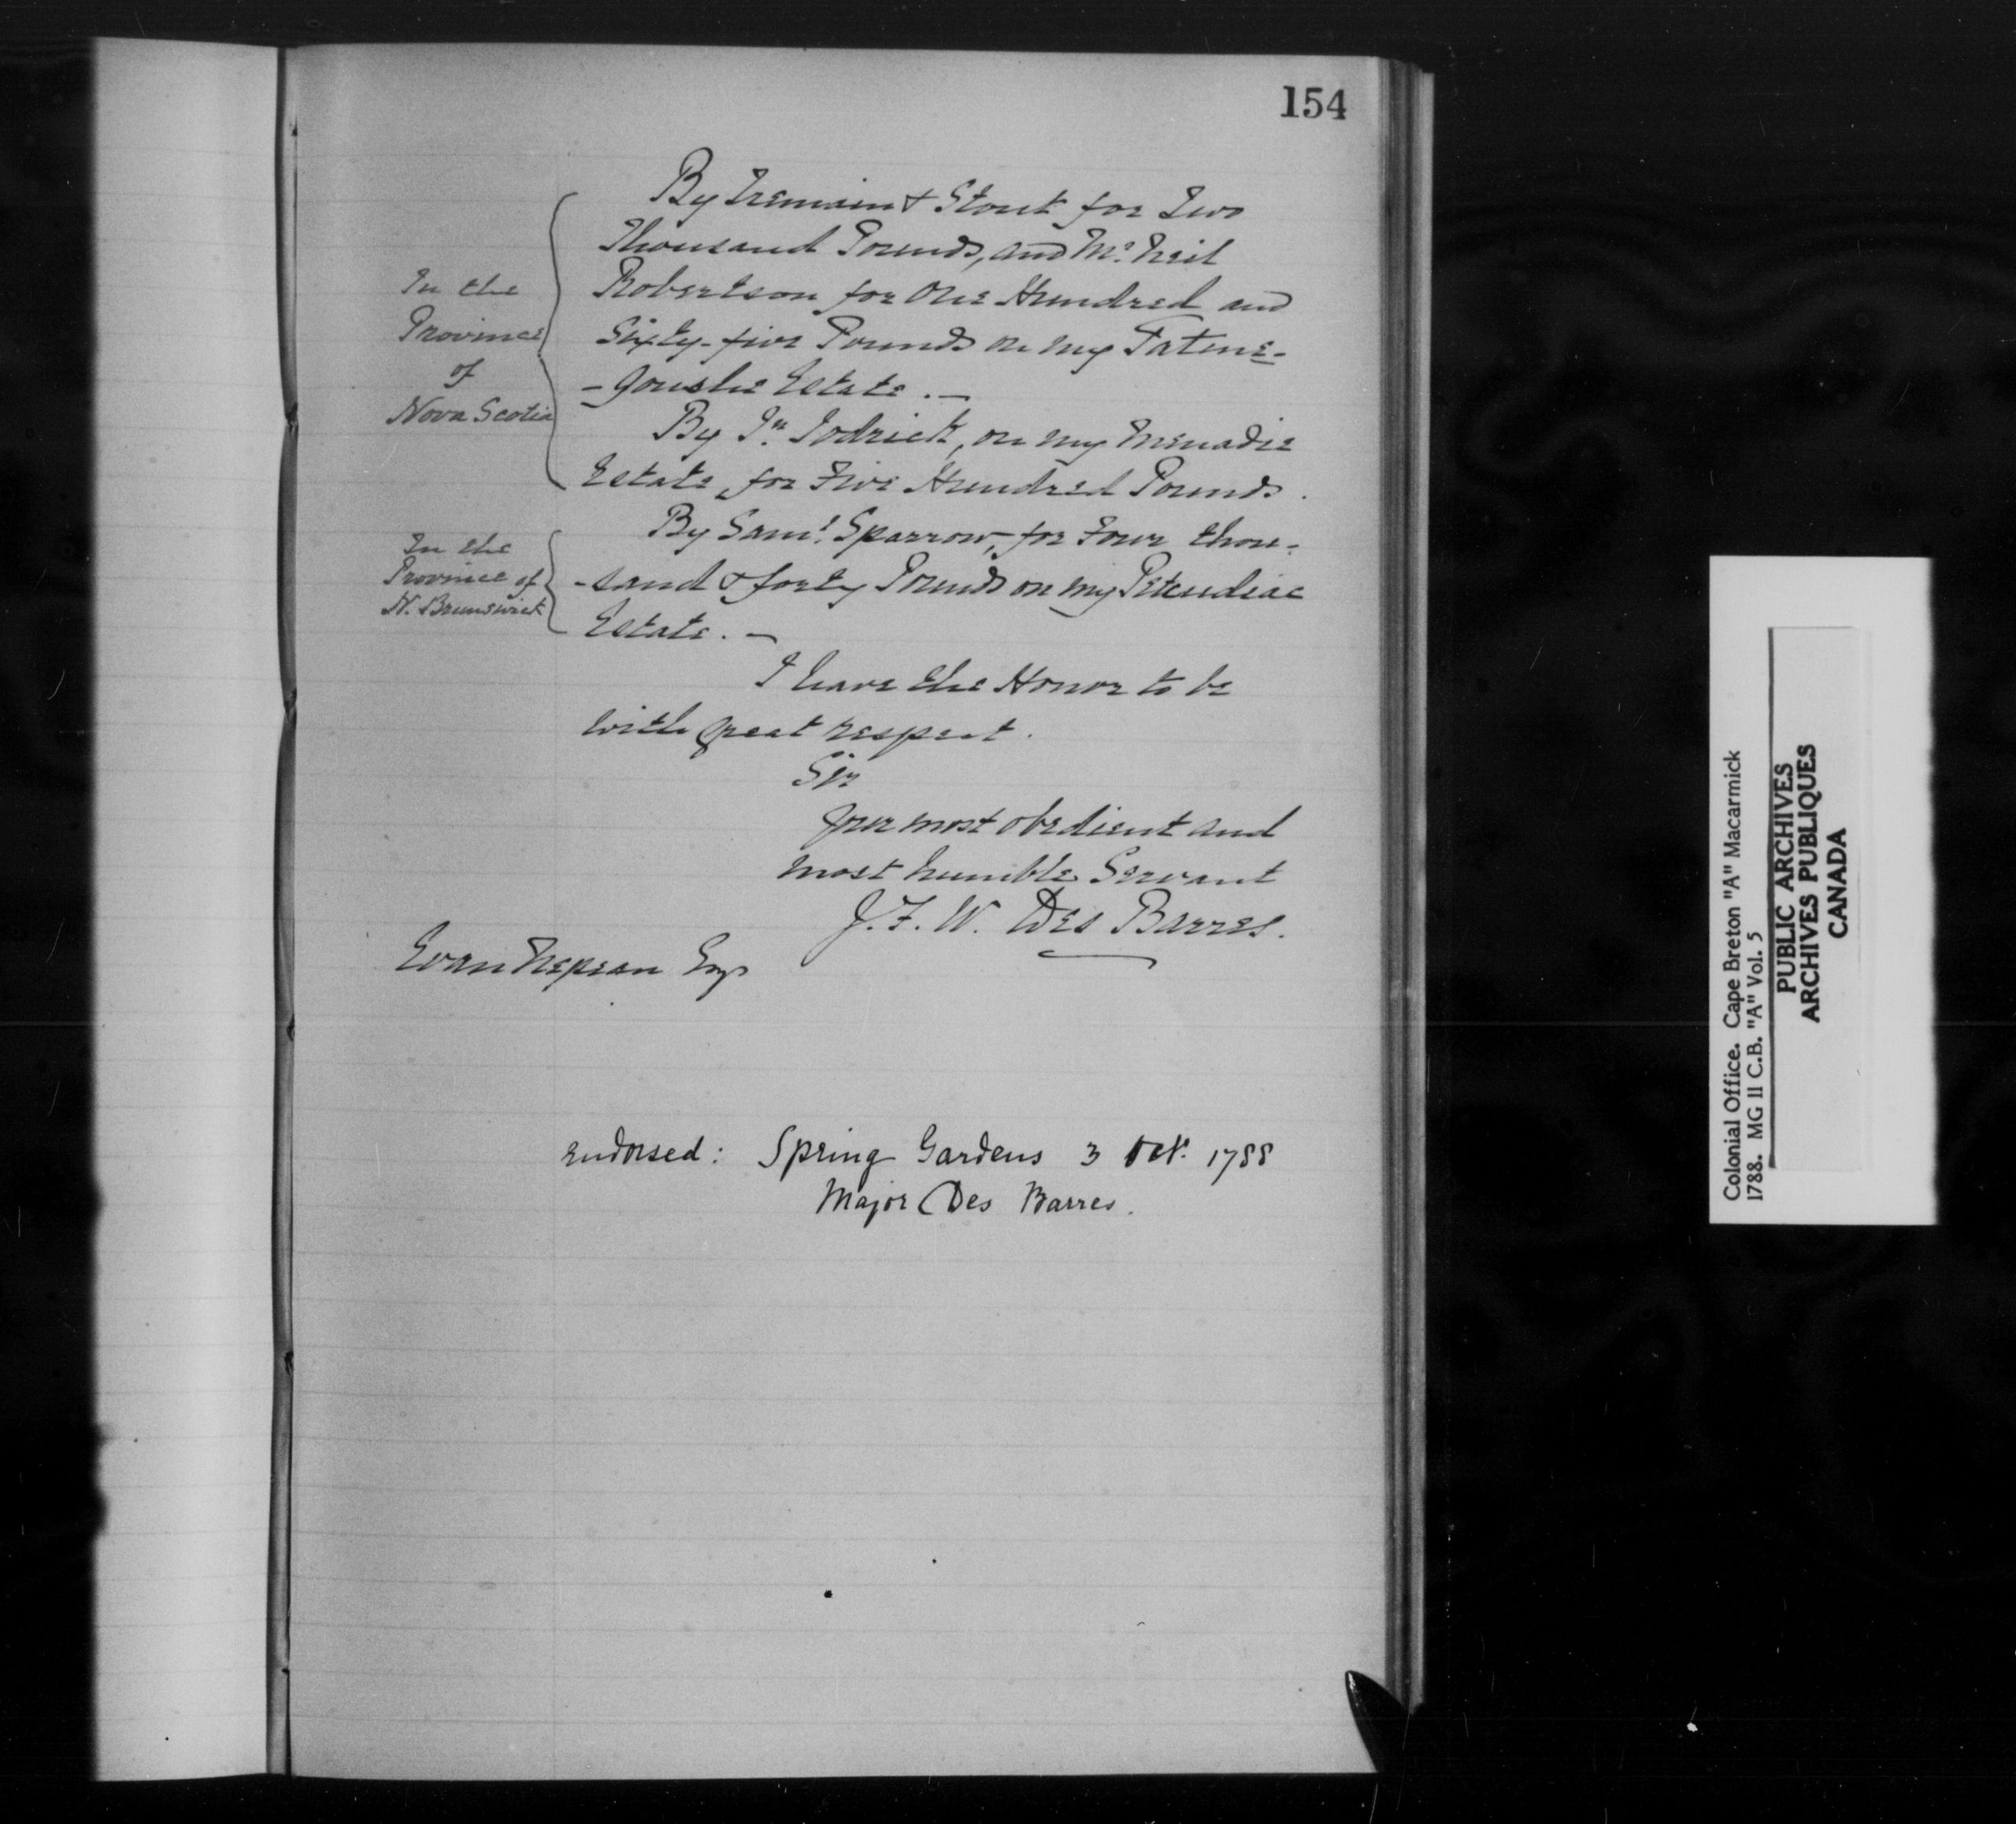 154
By Tremain & Stout for Two
Thousand Pounds, and Mr. Neil
Robertson for One Hundred and
Sixty-five Pounds on my Tatme-
-goushe Estate. —
In the
Province
of
Nova Scotia
By Jn. Jodrick, on my Menadie
Estate, for Five Hundred Pounds.
By Saml. Sparrow, for Four thou-
-sand & forty Pounds on my Petcudiac
Estate. —
In the
Province of
N. Brunswick
I have the Honor to be
with great respect.
Sir
Your most obedient and
most humble Servant
J. F. W. Des Barres.
Evan Nepean Esqr
Endorsed: Spring Gardens 3 Octr. 1788
Major Des Barres.
Colonial Office. Cape Breton "A" Macarmick
1788. MG 11 C.B. "A" Vol. 5
PUBLIC ARCHIVES
ARCHIVES PUBLIQUES
CANADA